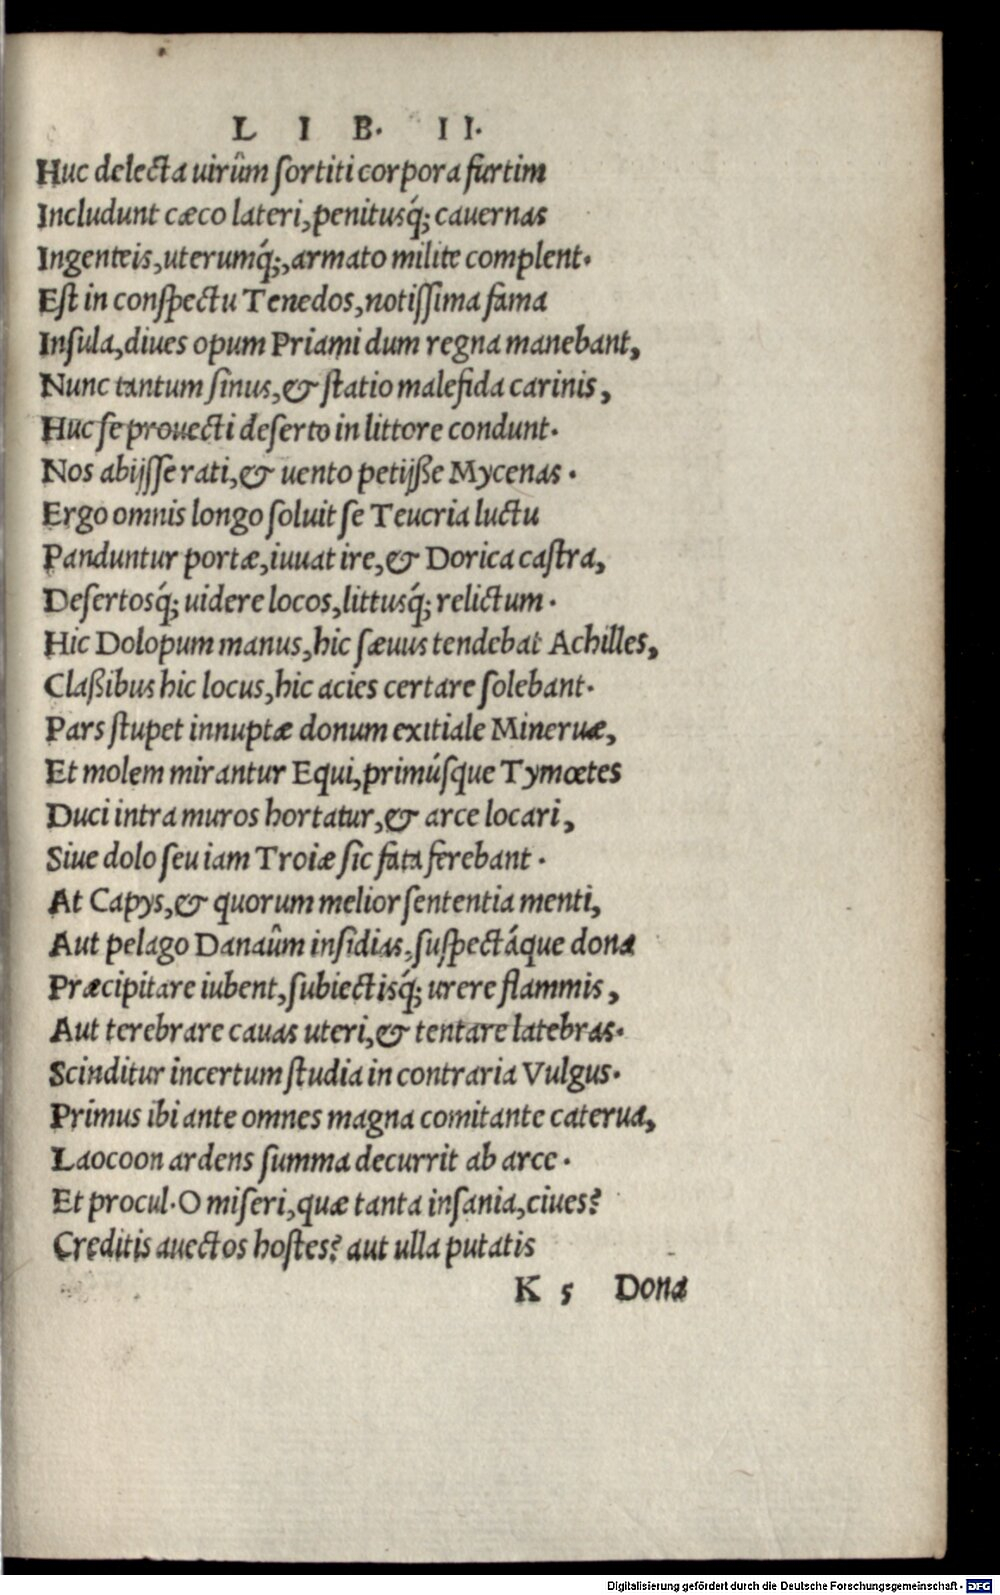 L I B. I I.
Huc delecta uirûm ſortiti corpora furtim
Includunt cæco lateri, penitusq́; cauernas
Ingenteis, uterumq́;, armato milite complent.
Eſt in conſpectu Tenedos, notiſſima fama
Inſula, diues opum Priami dum regna manebant,
Nunc tantum ſinus, & ſtatio malefida carinis,
Huc ſe prouecti deſerto in littore condunt.
Nos abijſſe rati, & uento petijße Mycenas.
Ergo omnis longo ſoluit ſe Teucria luctu
Panduntur portæ, iuuat ire, & Dorica caſtra,
Deſertosq́; uidere locos, littusq́; relictum.
Hic Dolopum manus, hic ſæuus tendebat Achilles,
Claßibus hic locus, hic acies certare ſolebant.
Pars ſtupet innuptæ donum exitiale Mineruæ,
Et molem mirantur Equi, primúſque Tymœtes
Duci intra muros hortatur, & arce locari,
Siue dolo ſeu iam Troiæ ſic fata ferebant.
At Capys, & quorum melior ſententia menti,
Aut pelago Danaûm inſidias, ſuſpectáque dona
Præcipitare iubent, ſubiectisq́; urere flammis,
Aut terebrare cauas uteri, & tentare latebras.
Scinditur incertum ſtudia in contraria Vulgus.
Primus ibi ante omnes magna comitante caterua,
Laocoon ardens ſumma decurrit ab arce.
Et procul. O miſeri, quæ tanta inſania, ciues?
Creditis auectos hoſtes? aut ulla putatis
K 5 Dona
Digitalisierung gefördert durch die Deutsche Forschungsgemeinschaft - DFG